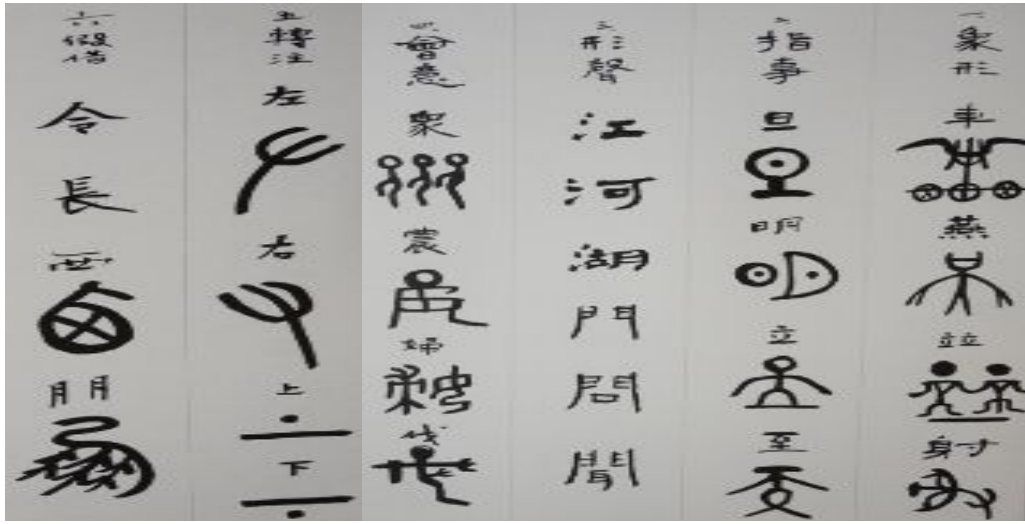 一象形
車
燕
竝
射
二指事
旦
明
立
至
三形聲
江
河
湖
門
問
聞
四會意
衆
農
婦
伐
五轉注
左
右
上
下
六假借
令
長
西
朋